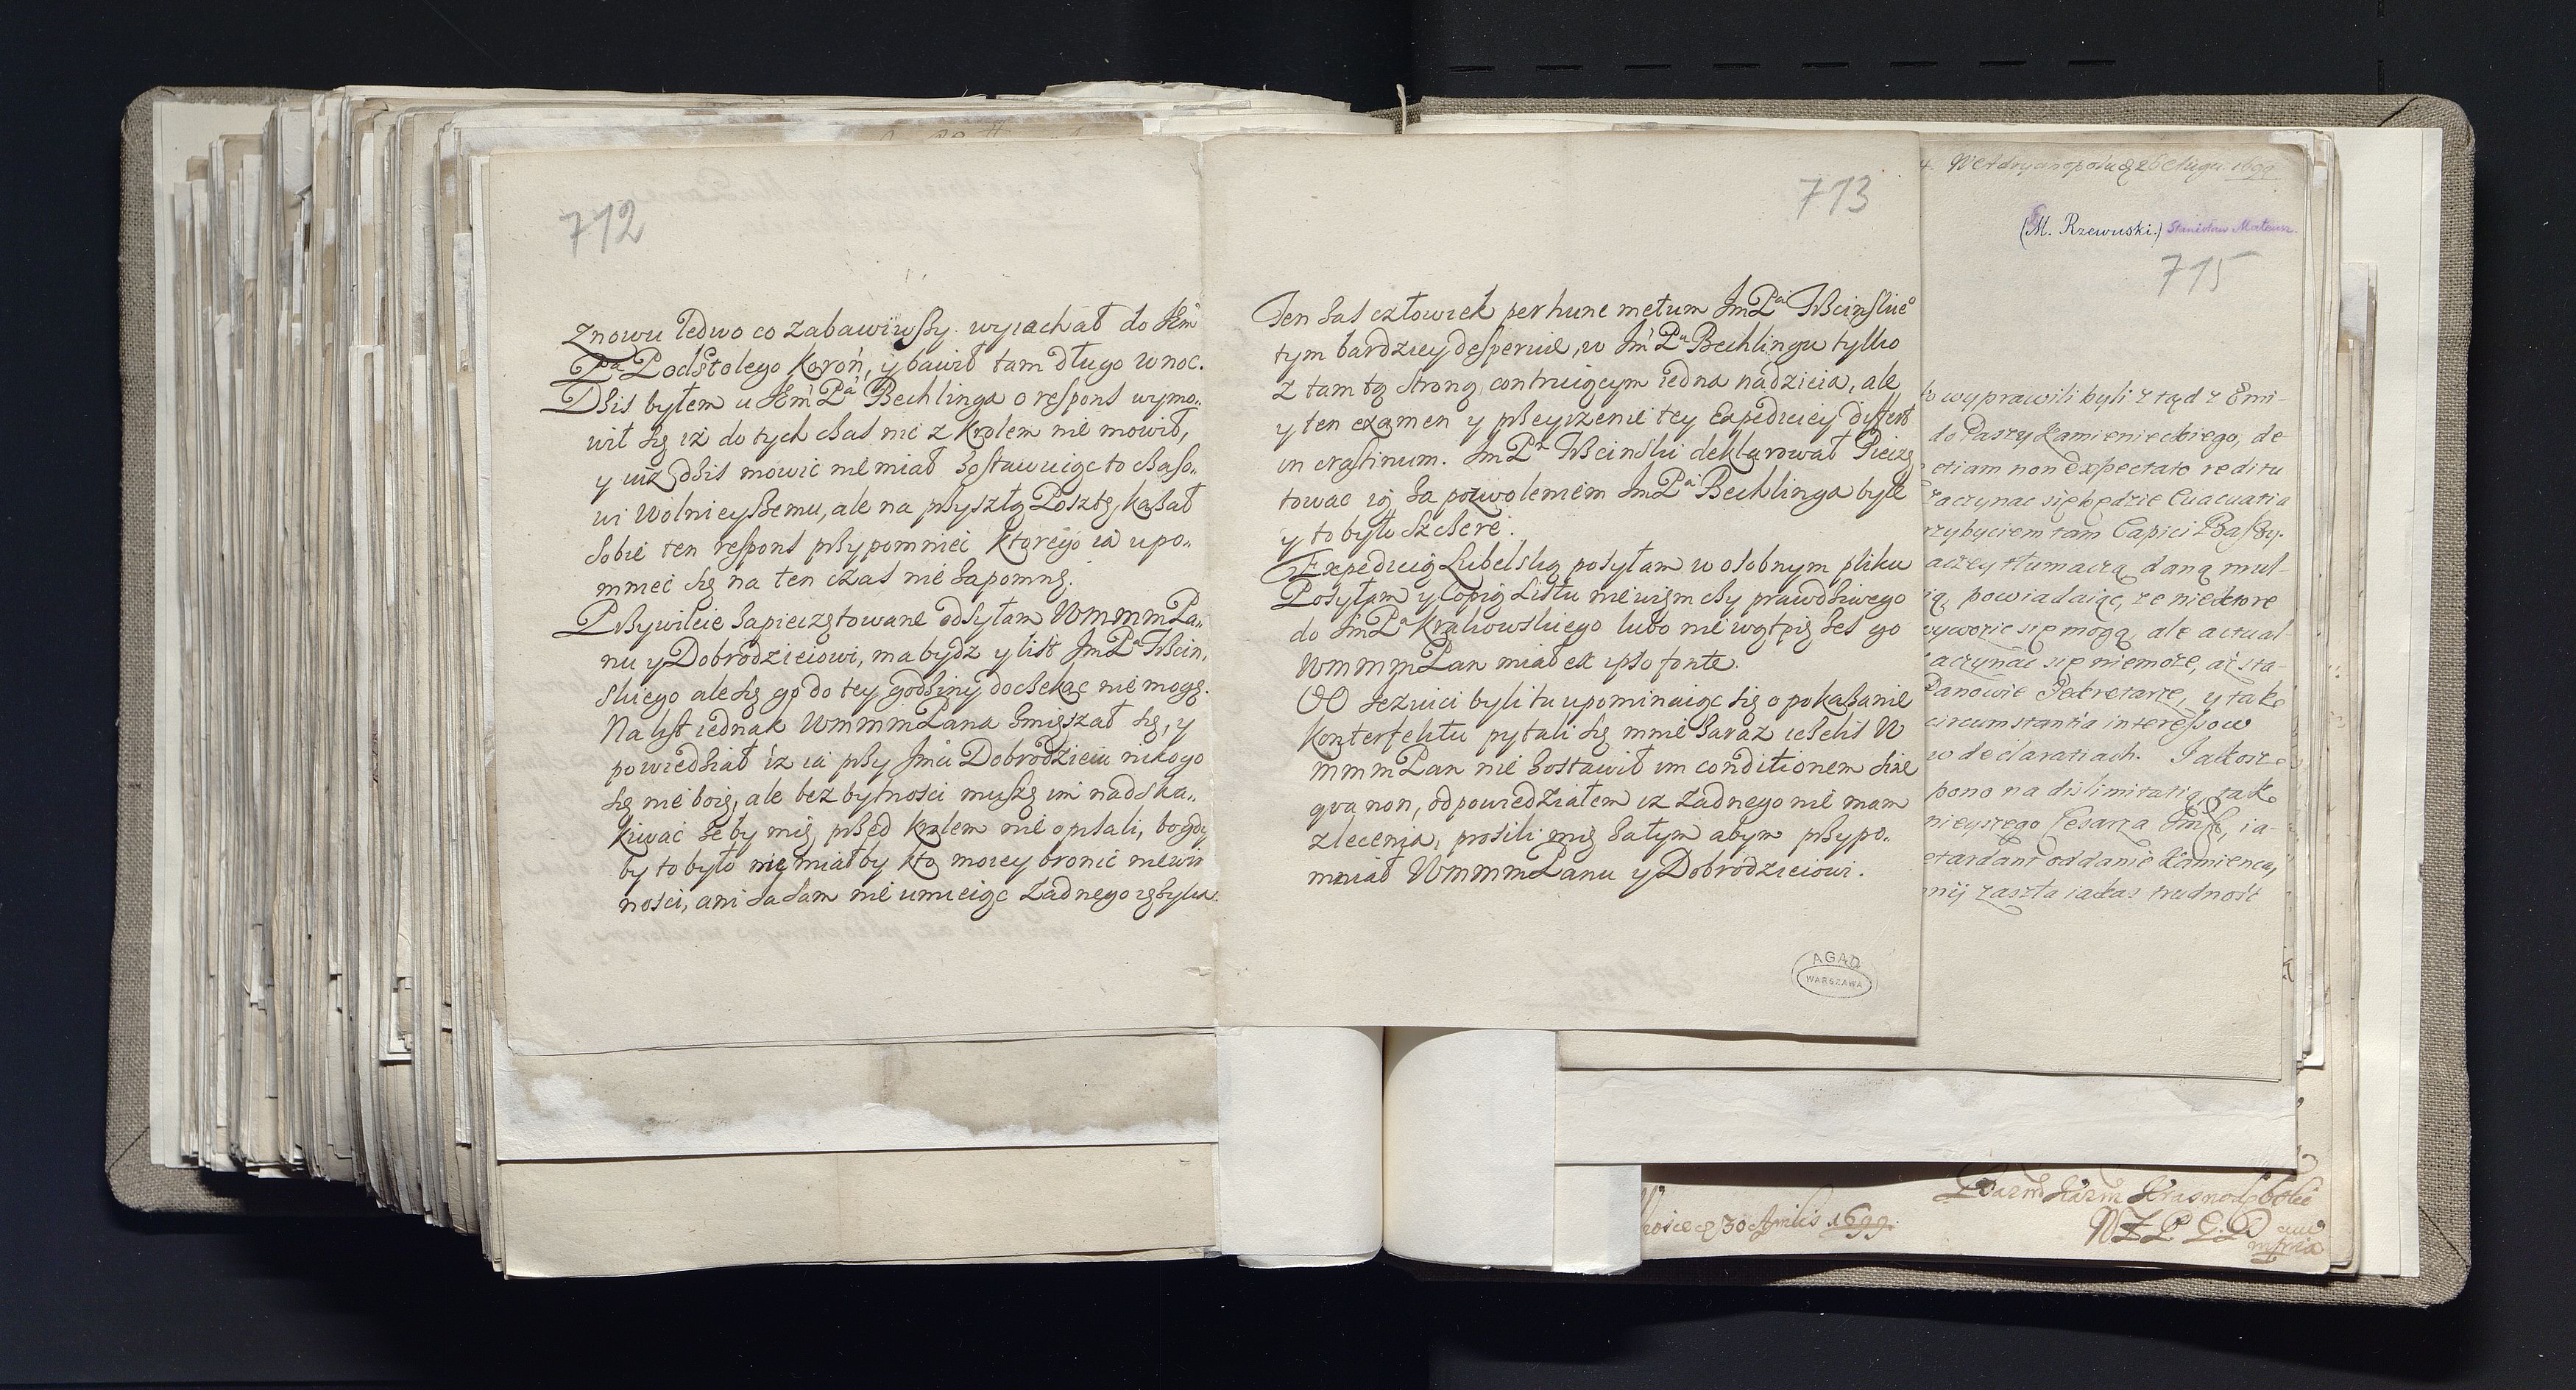 712
Znowu ledwo co zabawiwszy wyiachał do Jem
Pa Podstolego Koroń, y bawił tam długo w noc.
Dziś byłem u Jem Pa Bechlinga o respons wymo..
wił się iż do tych czas nic z Krolem nie mowił,
y iuż dziś mowić nie miał zostawuiąc to czaso..
wi wolnieyszemu, ale na przyszłą Posztę, kazał
sobie ten respons przypomniec ktorego ia upo..
mniec się na ten czas nie zapomnę.
Przywileie zapieczętowane odsyłam WmmmPa..
nu y Dobrodzieiowi, ma bydz y list JmPa Trzcin..
skiego ale się go do tey godziny doczekac nie mogę.
Na list iednak WmmmPana zmięszał się, y
powiedział iż ia przy Jmci Dobrodzieiu nikogo
się nie boię, ale bez bytności muszę im nadska..
kiwać żeby mię przed Krolem nie opisali, bo gdy
by to było nie miałby kto moiey bronić niewin
ności, ani ia sam nie umieiąc żadnego ięzyka.
713
Ten zas człowiek per hunc metum JmPa Trzcinskieo
tym bardziey desperuie, w Jm Pa Bechlingu tylko
z tam tą stroną contruiącym iedna nadzieia, ale
y ten examen y przeyrzenie tey Expediciey differt
in crastinum. JmPa Trzcinski deklarował Pieczę
towac ią za pozwoleniem JmPa Bechlinga byle
y to było szczere.
Expedicią Lubelską posyłam w osobnym pliku
Posyłam y Copią Listu nie wiem czy prawdziwego
do JmPa Krakowskiego lubo nie wątpię żes go
WmmmPan miał ex ipso fonte.
OO Jezuici byli tu upominaiąc się o pokazanie
Konterfektu pytali się mnie zaraz iezelis W
mmmPan nie zostawił im conditionem sine
qva non, odpowiedziałem iz żadnego nie mam
zlecenia, prosili mię zatym abym przypo..
mniał WmmmPanu y Dobrodzieiowi.
AGAD
WARSZAWA
W Adryanopolu d 26 Augu. 1699
(M. Rzewuski.) Stanisław Mateusz.
715
wyprawili byli z tąd z Emi-
do Paszy Kamienieckiego, de-
etiam non expectato reditu
zaczynac się będzie Evacuatia
przybyciem tam Capici Baszy.
tłumaczą daną mul-
ią, powiadaiąc, ze niektore
wywozic się mogą, ale actual
zaczynac się niemoze, aż sta-
Panowie Sekretarze, y tak
circumstantia interessow
w declaratiach. Jakosz
pono na dislimitatią, tak
nieyszego Cesarza Jmsc, ia-
retardant oddanie Kamienca,
zaszła iakas trudnosc
d 30 Aprilis 1699.
Kazm Krasnodębski
mpria